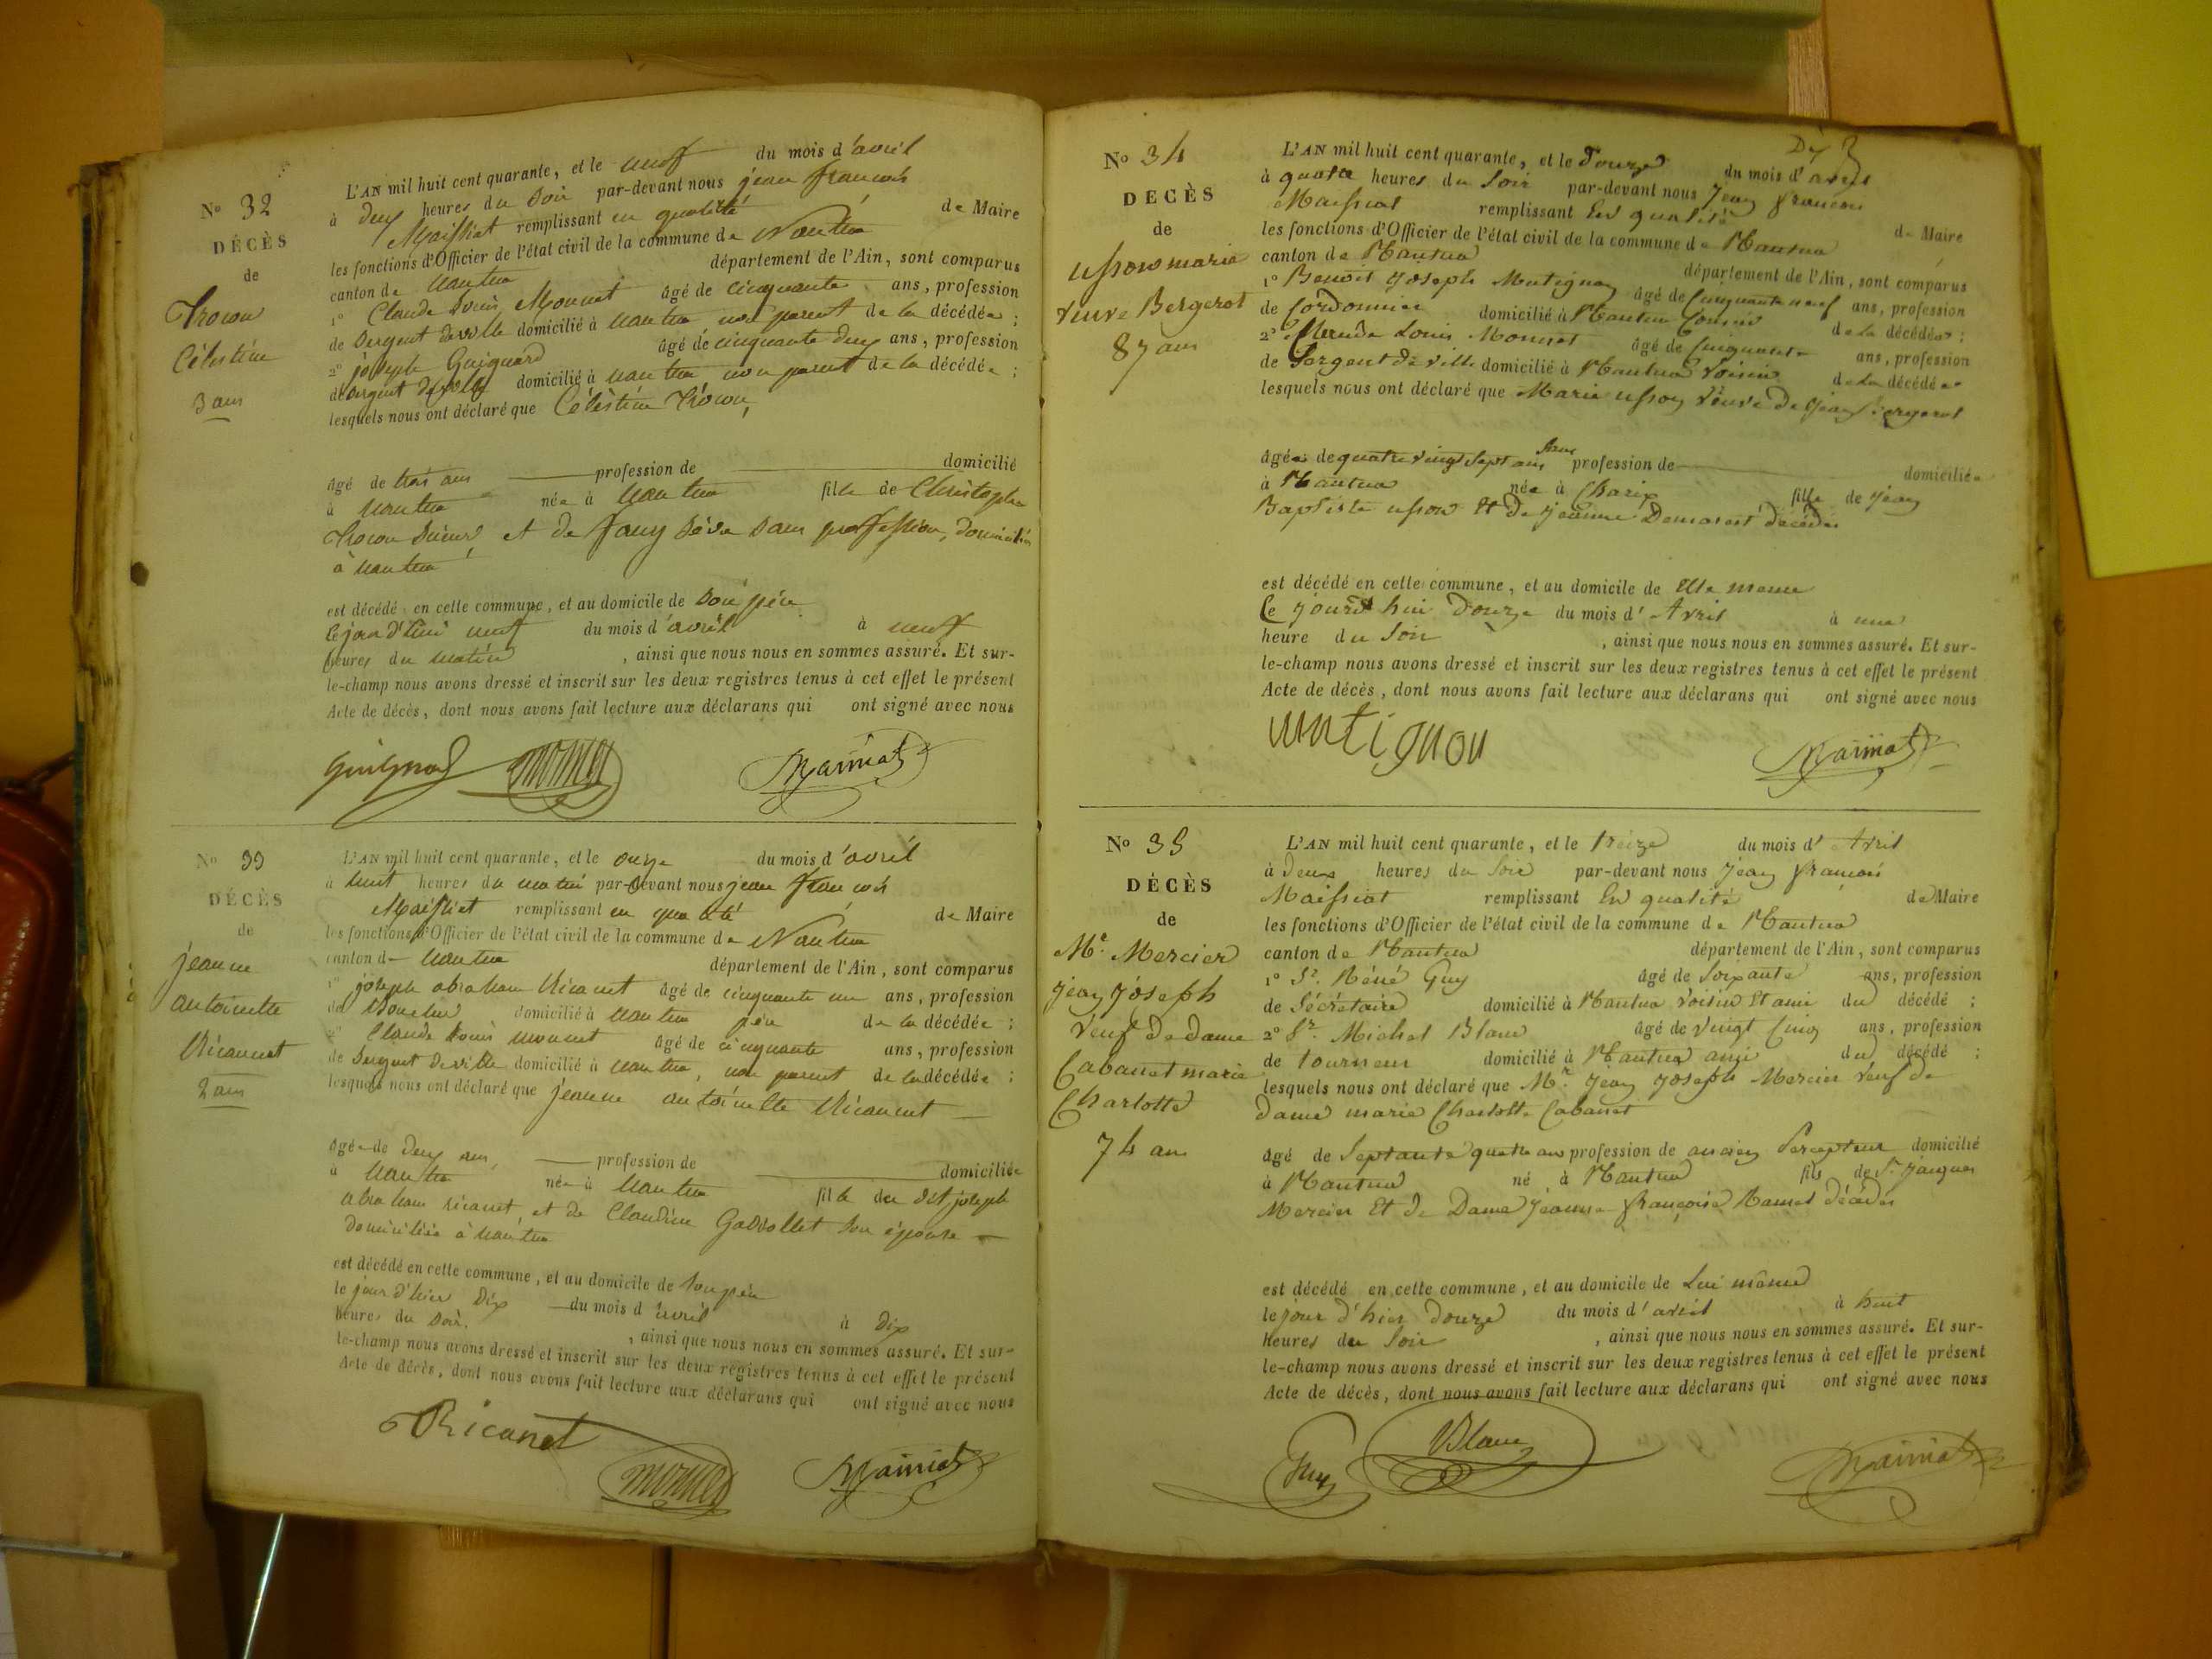 N° 32
DÉCÈS
de
Célestine
3 ans
L'AN mil huit cent quarante, et le neuf du mois d'avril
à deux heures du soir par-devant nous jean françois
Maissiat remplissant en qualité de Maire
les fonctions d'Officier de l'état civil de la commune de Nantua
canton de Nantua département de l'Ain, sont comparus
1° Claude Louis Monnet âgé de cinquante ans, profession
de Sergent deville domicilié à nantua non parent de la décédée ;
2° joseph Guignard âgé de cinquante deux ans, profession
de Sergent deville domicilié à nantua non parent de la décédée ;
lesquels nous ont déclaré que Célèstine
âgé de trois ans profession de domicilié
à nantua née à Nantua fille de Christophe
et de fany sans profession, domiciliés
à nantua
est décédé en cette commune, et au domicile de Son père
lejourd'hui neuf du mois d'avril à neuf
heures du matin , ainsi que nous nous en sommes assuré. Et sur-
le-champ nous avons dressé et inscrit sur les deux registres tenus à cet effet le présent
Acte de décès, dont nous avons fait lecture aux déclarans qui ont signé avec nous
Guignard Monnet Maissiat
N° 33
DÉCÈS
de
jeanne
antoinette
Ricannet
2 ans
L'AN mil huit cent quarante, et le onze du mois d'avril
à huit heures du matin par-devant nous jean françois
Maissiat remplissant en qualité de Maire
les fonctions d'Officier de l'état civil de la commune de Nantua
canton de Nantua département de l'Ain, sont comparus
1° joseph abraham Ricanet âgé de cinquante un ans, profession
domicilié à nantua père de la décédée ;
2° Claude Louis monnet âgé de cinquante ans, profession
de Sergent deville domicilié à nantua, non parent de la décédée ;
lesquels nous ont déclaré que jeanne antoinette Ricannet
âgée de deux ans, profession de domiciliée
à nantua née à Nantua fille du dit joseph
abraham ricanet et de Claudine son épouse
domiciliée à nantua
est décédé en cette commune, et au domicile de Son père
le jour d'hier dix du mois d'avril à dix
heures du soir. , ainsi que nous nous en sommes assuré. Et sur-
le-champ nous avons dressé et inscrit sur les deux registres tenus à cet effet le présent
Acte de décès, dont nous avons fait lecture aux déclarans qui ont signé avec nous
Ricanet
Monnet Maissiat
N° 34
DECÈS
de
usson marie
veuve Bergerot
87 ans
L'AN mil huit cent quarante, et le Douze du mois d'avril
à quatre heures du Soir par-devant nous Jean françois
Maissiat remplissant En qualité de Maire
les fonctions d'Officier de l'état civil de la commune de Nantua
canton de Nantua département de l'Ain, sont comparus
1° Benoit Joseph Mutignon âgé de Cinquante neuf ans, profession
de Cordonnier domicilié à Nantua de la décédée ;
2° Claude Louis Monnet âgé de Cinquante ans, profession
de Sergent de ville domicilié à Nantua Voisin de la décédée
lesquels nous ont déclaré que Marie usson Veuve De Jean Bergerot
âgée de quatre vingt sept ans sans profession de domiciliée
à Nantua née à Charix fille de Jean
Baptiste usson Et De jeanne décédés
est décédé en cette commune, et au domicile de Elle meme
Ce jourd'hui Douze du mois d'Avril à une
heure du Soir , ainsi que nous nous en sommes assuré. Et sur-
le-champ nous avons dressé et inscrit sur les deux registres tenus à cet effet le présent
Acte de décès, dont nous avons fait lecture aux déclarans qui ont signé avec nous
mutignon Maissiat
N° 35
DÉCÈS
de
Mr. Mercier
Jean Joseph
Veuf De dame
Cabanet marie
Charlotte
74 ans
L'AN mil huit cent quarante, et le treize du mois d'Avril
à Deux heures du Soir par-devant nous Jean françois
Maissiat remplissant En qualité de Maire
les fonctions d'Officier de l'état civil de la commune de Nantua
canton de Nantua département de l'Ain, sont comparus
1° Sr. Réné Guy âgé de Soixante ans, profession
de Sécrétaire domicilié à Nantua Voisin Et ami du décédé ;
2° Sr. Michel Blanc âgé de vingt Cinq ans, profession
de tourneur domicilié à Nantua ami du décédé ;
lesquels nous ont déclaré que Mr. Jean Joseph Mercier Veuf de
Dame marie Charlotte Cabanet
âgé de Septante quatre ans profession de ancien Percepteur domicilié
à Nantua né à Nantua fils de Sr. Jacques
Mercier Et De Dame Jeanne françoise décédés
est décédé en cette commune, et au domicile de Lui même
le jour d'hier douze du mois d'avril à huit
heures du Soir , ainsi que nous nous en sommes assuré. Et sur-
le-champ nous avons dressé et inscrit sur les deux registres tenus à cet effet le présent
Acte de décès, dont nous avons fait lecture aux déclarans qui ont signé avec nous
Guy Blanc Maissiat